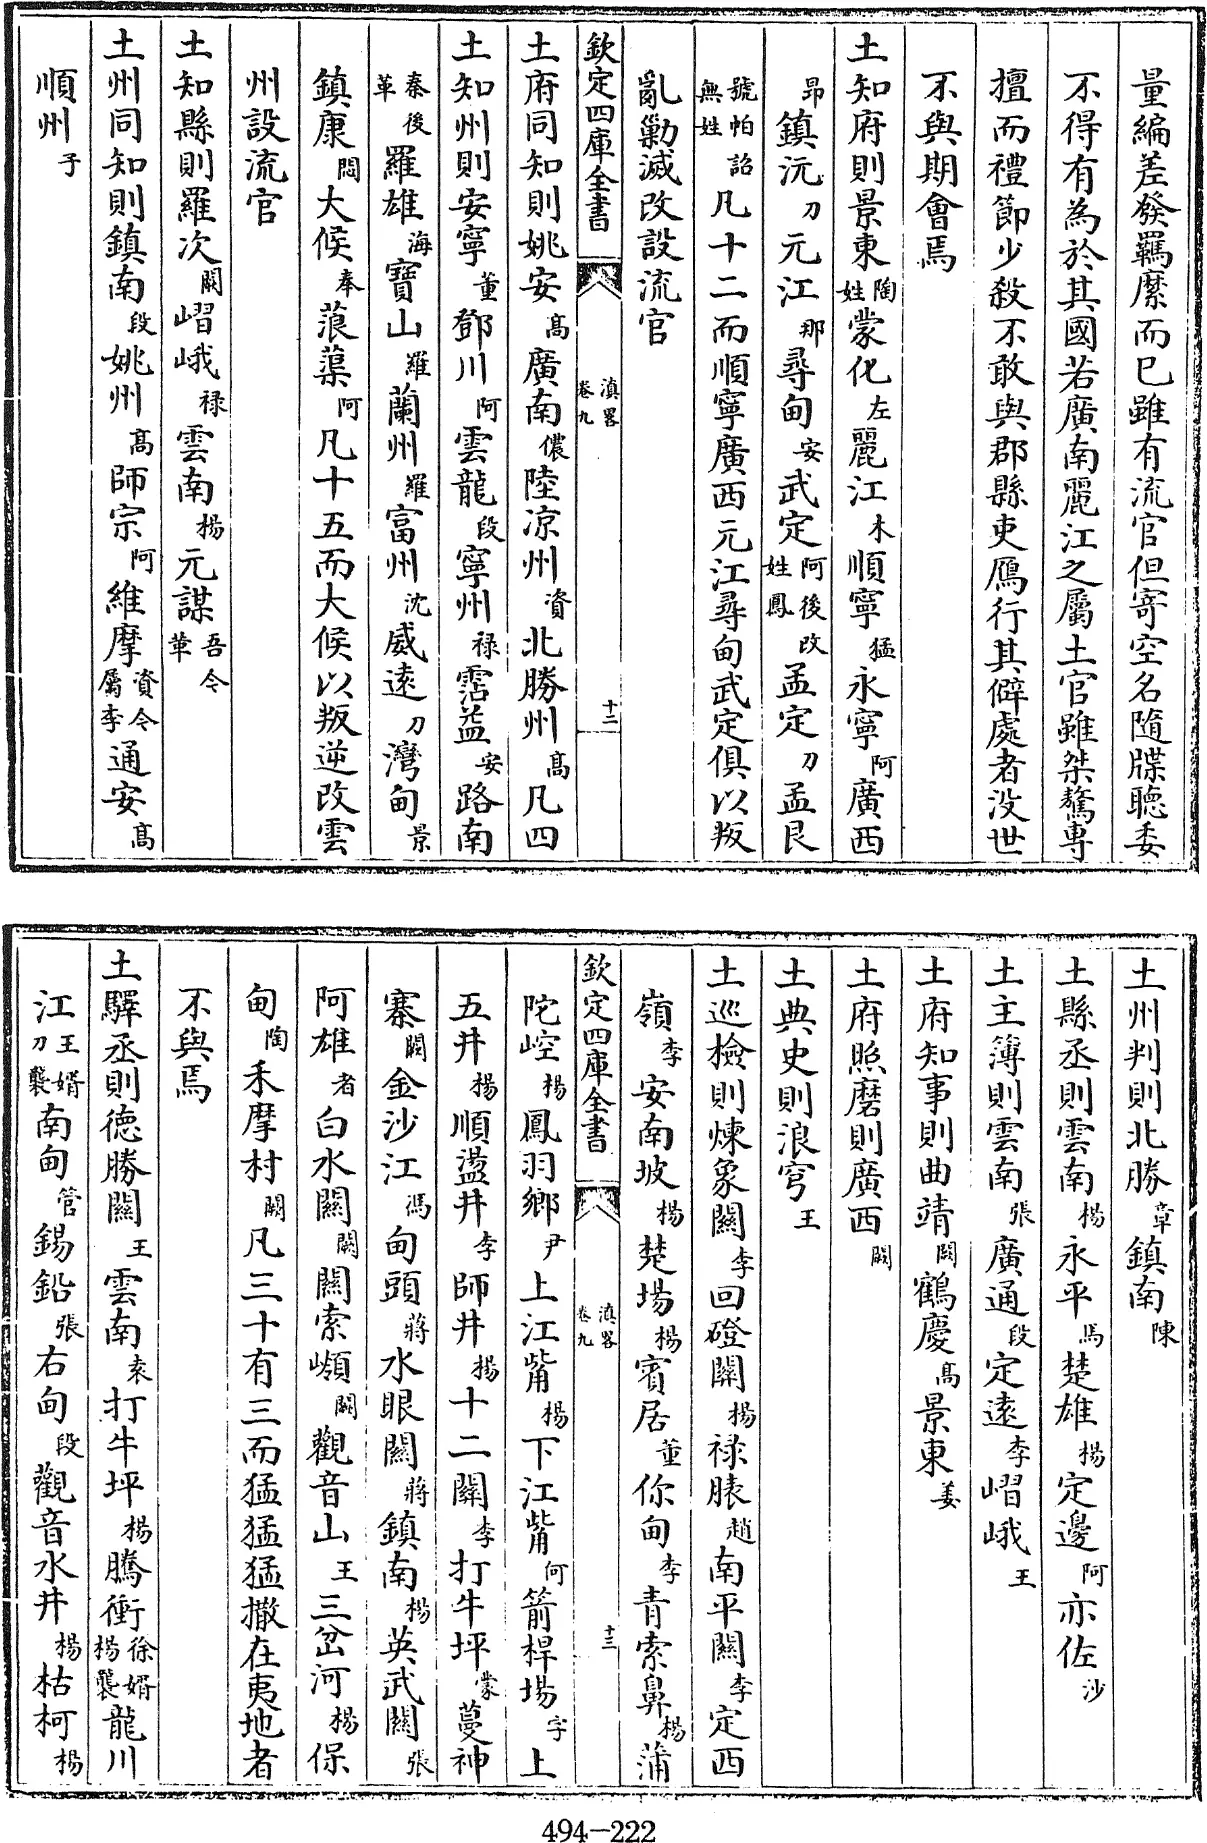 量編差發羈縻而已雖有流官但寄空名隨牒聽委
不得有為於其國若廣南麗江之屬土官雖桀驁專
擅而禮節少殺不敢與郡縣吏鴈行其僻處者没世
不與期會焉
土知府則景東陶姓蒙化左麗江木順寧猛永寧阿廣西
昂鎮沅刀元江那尋甸安武定阿後改姓鳳孟定刀孟艮
號帕詔無姓凡十二而順寧廣西元江尋甸武定俱以叛
亂勦滅改設流官
欽定四庫全書
滇畧卷九
十二
土府同知則姚安髙廣南儂陸凉州資北勝州髙凡四
土知州則安寧董鄧川阿雲龍段寧州禄霑益安路南
秦後革羅雄海寶山羅蘭州羅富州沈威遠刀灣甸景
鎮康悶大候奉蒗蕖阿凡十五而大候以叛逆改雲
州設流官
土知縣則羅次闕嶍峨禄雲南楊元謀吾令革
土州同知則鎮南段姚州髙師宗阿維摩資令屬李通安髙
順州子
土州判則北勝章鎮南陳
土縣丞則雲南楊永平馬楚雄楊定邊阿亦佐沙
土主簿則雲南張廣通段定遠李嶍峨王
土府知事則曲靖闕鶴慶髙景東姜
土府照磨則廣西闕
土典史則浪穹王
土巡檢則煉象關李回磴關楊禄脿趙南平關李定西
嶺李安南坡楊楚場楊賓居董你甸李青索鼻楊蒲
欽定四庫全書
滇畧卷九
十三
陀崆楊鳳羽鄉尹上江觜楊下江觜何箭桿場字上
五井楊順盪井李師井楊十二關李打牛坪蒙蔓神
寨闕金沙江馮甸頭蔣水眼關蔣鎮南楊英武關張
阿雄者白水關闕關索嶺闕觀音山王三岔河楊保
甸陶禾摩村闕凡三十有三而猛猛猛撒在夷地者
不與焉
土驛丞則德勝關王雲南袁打牛坪楊騰衝徐婿楊襲龍川
江王婿刀襲南甸管錫鉛張右甸段觀音水井楊枯柯楊
494-222